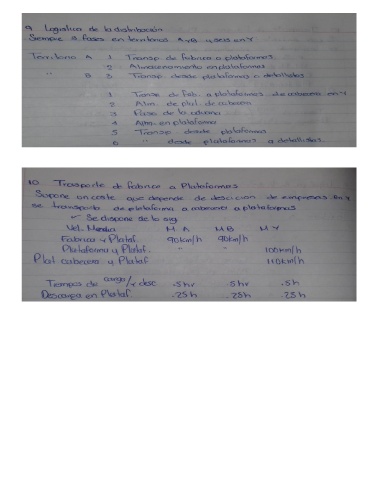 9. Logistica de la distribución
Siempre 3 fases en territorios A y B y seis en Y
Territorio A 1 Transp. de fabrica a plataformas
2 Almacenamiento en plataformas
" B 3 Transp. desde plataformas a detallistas
1 Transp. de fab. a plataformas de cabecera en Y
2 Alm. de plat. de cabecera
3 Paso de la aduana
4 Alm. en plataforma
5 Transp. desde plataforma
6 " desde plataformas a detallistas
10. Trasporte de Fabrica a Plataformas
Supone un coste que depende de desicion de empresas. En Y
se transporta de plataforma a cabecera a plataformas
Se dispone de lo sig
Vel. Media M. A M.B M Y
Fabrica y Plataf. 90km/h 90km/h
Plataforma y Plataf. " " 100km/h
Plat cabecera y Plataf. 110km/h
Tiempos de carga/y desc .5hr .5hr .5h
Descarga en Plataf. .25h .25h .25h